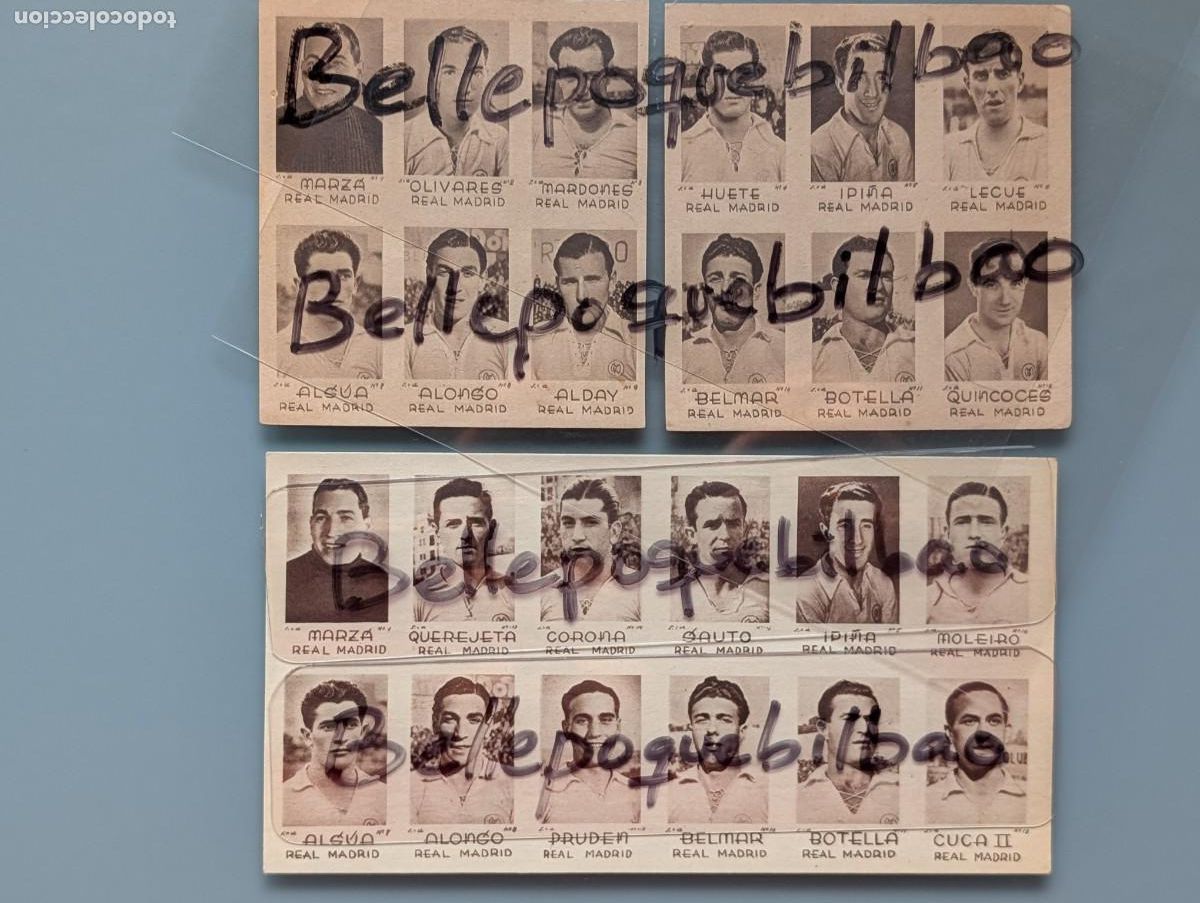 todocoleccion
Bellepoquebilbao
MARZÁ OLIVARES MARDONES HUETE IPIÑA LECUE
REAL MADRID REAL MADRID REAL MADRID REAL MADRID REAL MADRID REAL MADRID
Bellepoquebilbao
ALSÚA ALONSO ALDAY BELMAR BOTELLA QUINCOCES
REAL MADRID REAL MADRID REAL MADRID REAL MADRID REAL MADRID REAL MADRID
Bellepoquebilbao
MARZÁ QUEREJETA CORONA SAUTO IPIÑA MOLEIRO
REAL MADRID REAL MADRID REAL MADRID REAL MADRID REAL MADRID REAL MADRID
Bellepoquebilbao
ALSÚA ALONSO PRUDEN BELMAR BOTELLA CUCA II
REAL MADRID REAL MADRID REAL MADRID REAL MADRID REAL MADRID REAL MADRID